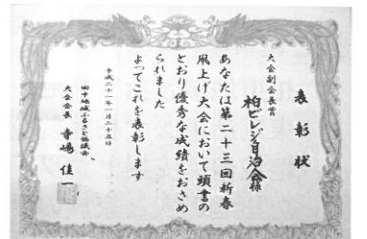 表彰状
大会副会長賞
柏ビレジ自治会様
あなたは第二十三回新春
凧上げ大会において頭書の
とおり優秀な成績をおさめ
られました
よってこれを表彰します
平成二十一年一月二十五日
田中地域ふるさと協議会
大会会長 寺嶋佳一